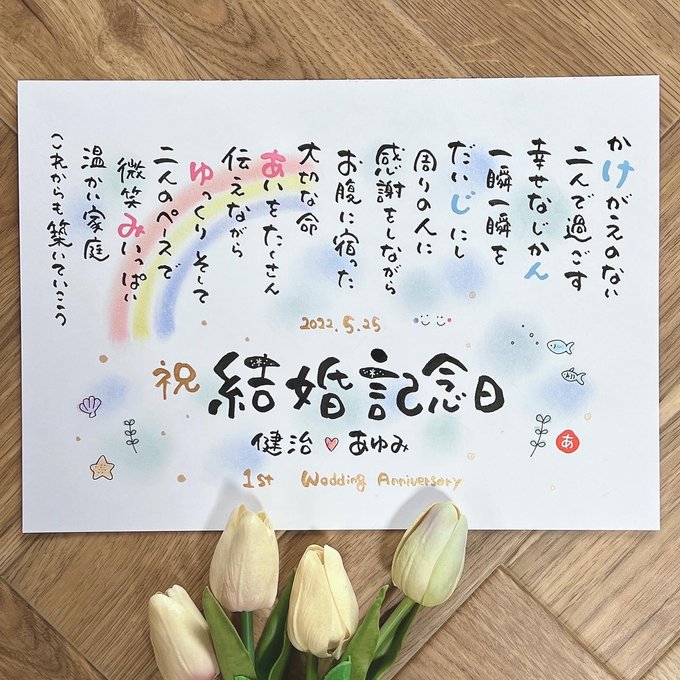 かけがえのない
二人で過ごす
幸せなじかん
一瞬一瞬を
だいじにし
周りの人に
感謝をしながら
お腹に宿った
大切な命
あいをたくさん
伝えながら
ゆっくりそして
二人のペースで
微笑みいっぱい
温かい家庭
これからも築いていこう
2022.5.25
祝 結婚記念日
健治♥あゆみ
あ
1st Wedding Anniversary